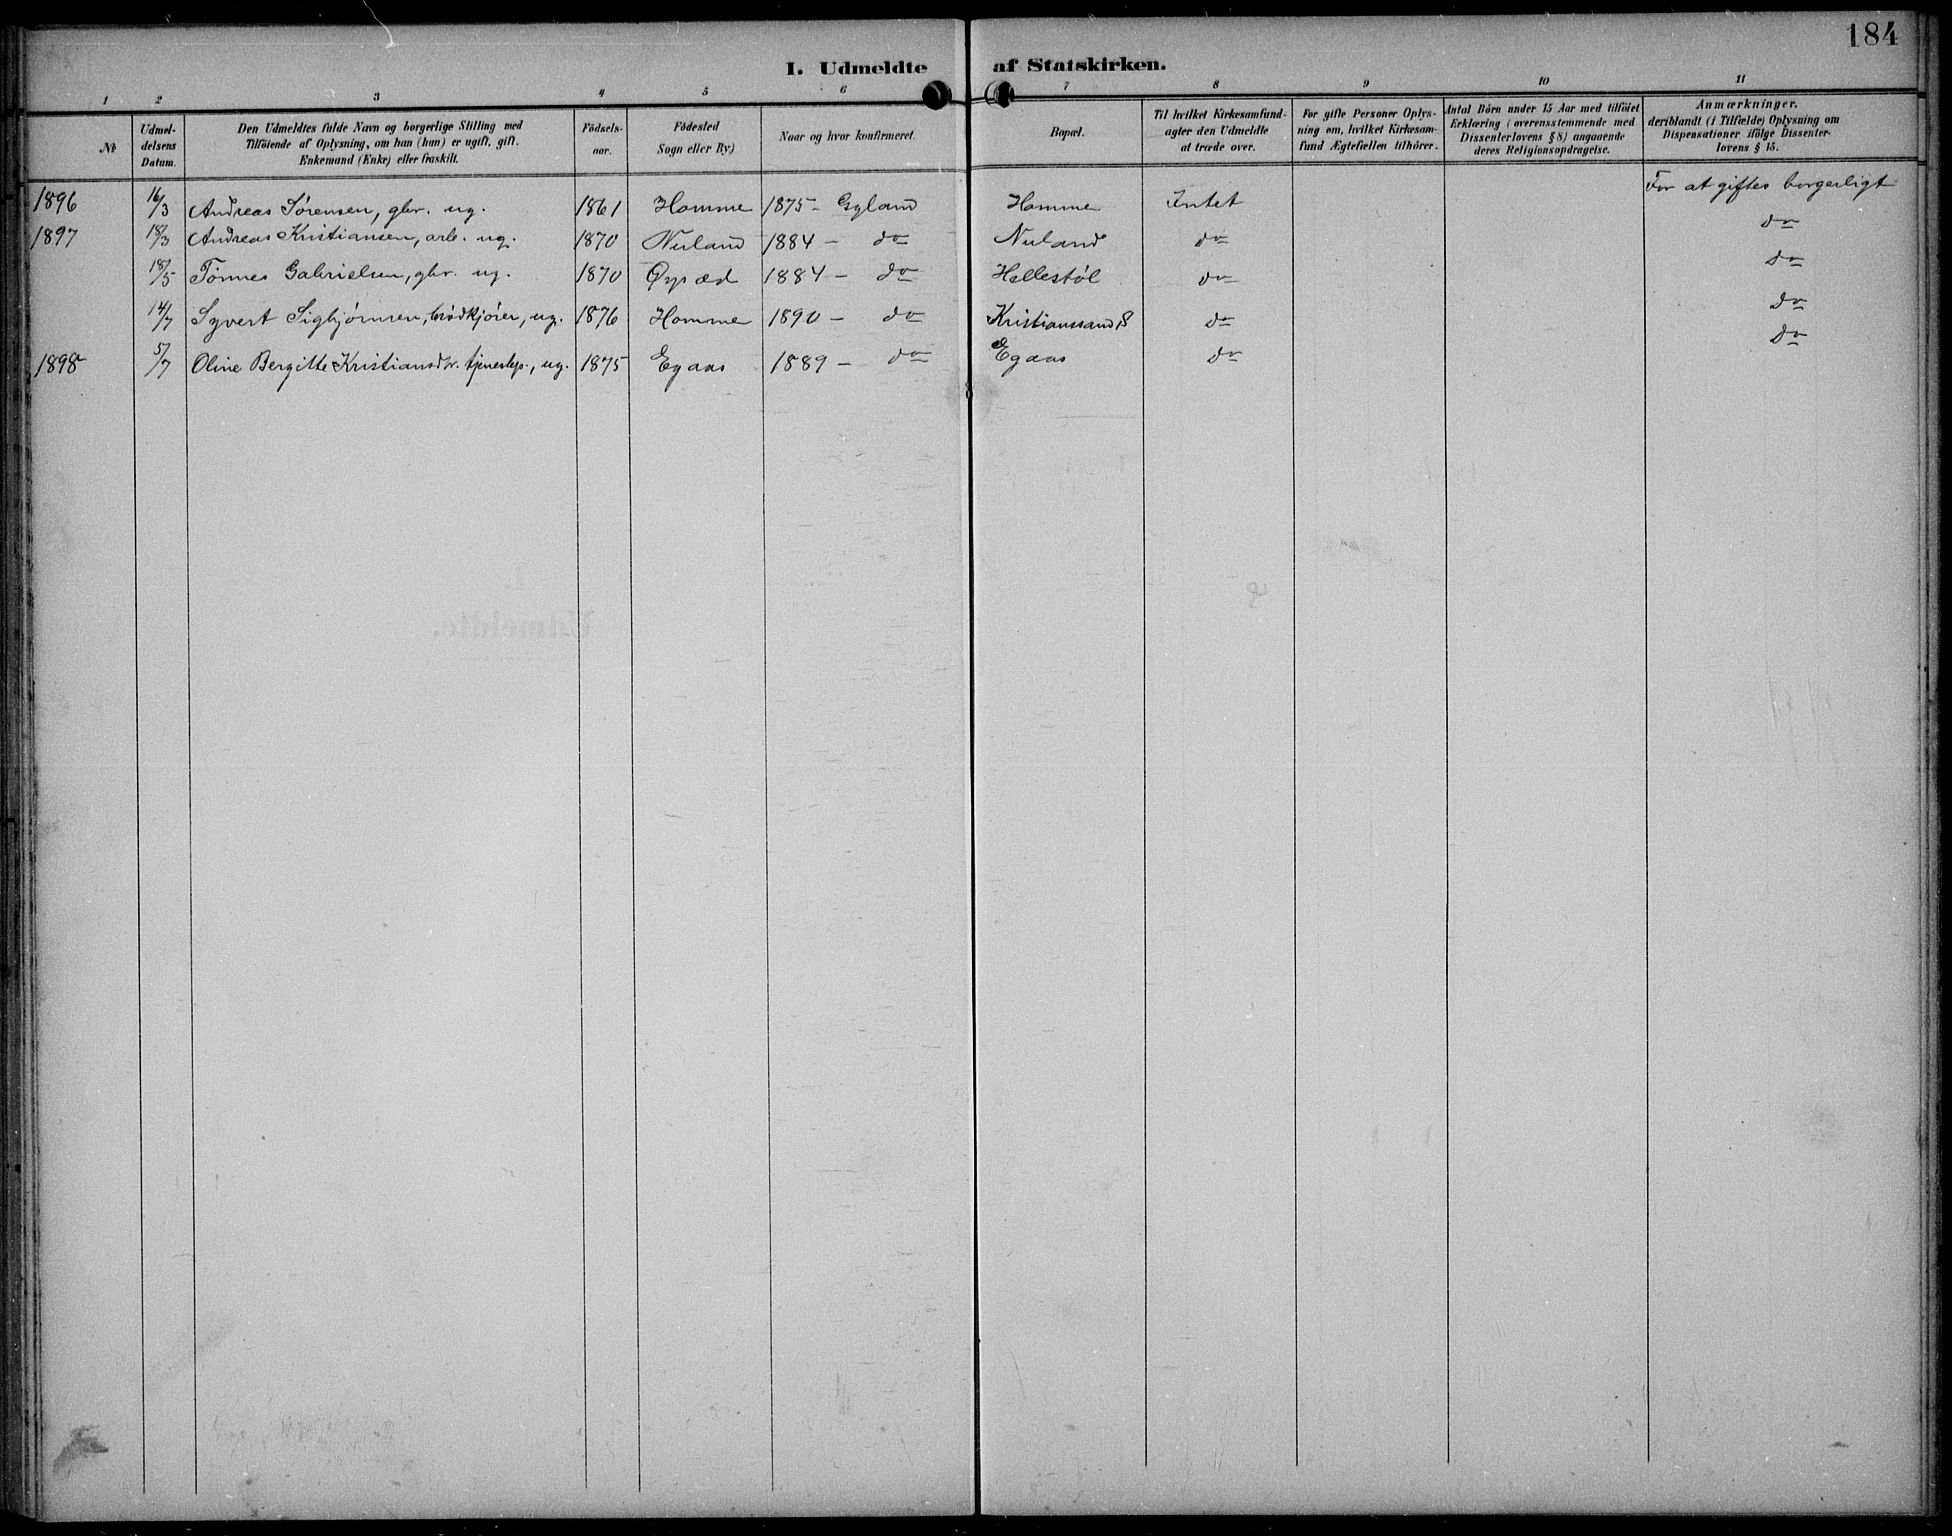 184
I. Udmeldte af Statskirken.
1 2 3 4 5 6 7 8 9 10 11
№
Udmel-
delsens
Datum.
Den Udmeldtes fulde Navn og borgerlige Stilling med
Tilföiende af Oplysning, om han (hun) er ugift, gift,
Enkemand (Enke) eller fraskilt.
Födsels-
aar.
Födested
Sogn eller By)
Naar og hvor konfirmeret.
Bopæl.
Til hvilket Kirkesamfund-
agter den Udmeldte
at træde over.
For gifte Personer Oplys-
ning om, hvilket Kirkesam-
fund Ægtefællen tilhörer.
Antal Börn under 15 Aar med tilföiet
Erklæring (overensstemmende med
Dissenterlovens § 8) angaaende
deres Religionsopdragelse.
Anmærkninger,
deriblandt (i Tilfælde) Oplysning om
Dispensationer ifölge Dissenter-
lovens § 15.
1896 16/3 Andreas Sørensen, gbr. ug. 1861 Homme 1875 - Gyland Homme Intet For at giftes borgerligt
1897 18/3 Andreas Kristiansen, arb. ug. 1870 Nuland 1884 - do Nuland do do
18/5 Tønnes Gabrielsen, gbr. ug. 1870 Øysæd 1884 - do Hellestøl do do
14/7 Syvert Sigbjørnsen, brødkjører, ug. 1876 Homme 1890 - do Kristianssand S do do
1898 5/7 Oline Bergitte Kristiansdtr. tjenestep., ug. 1875 Egaas 1889 - do Egaas do do